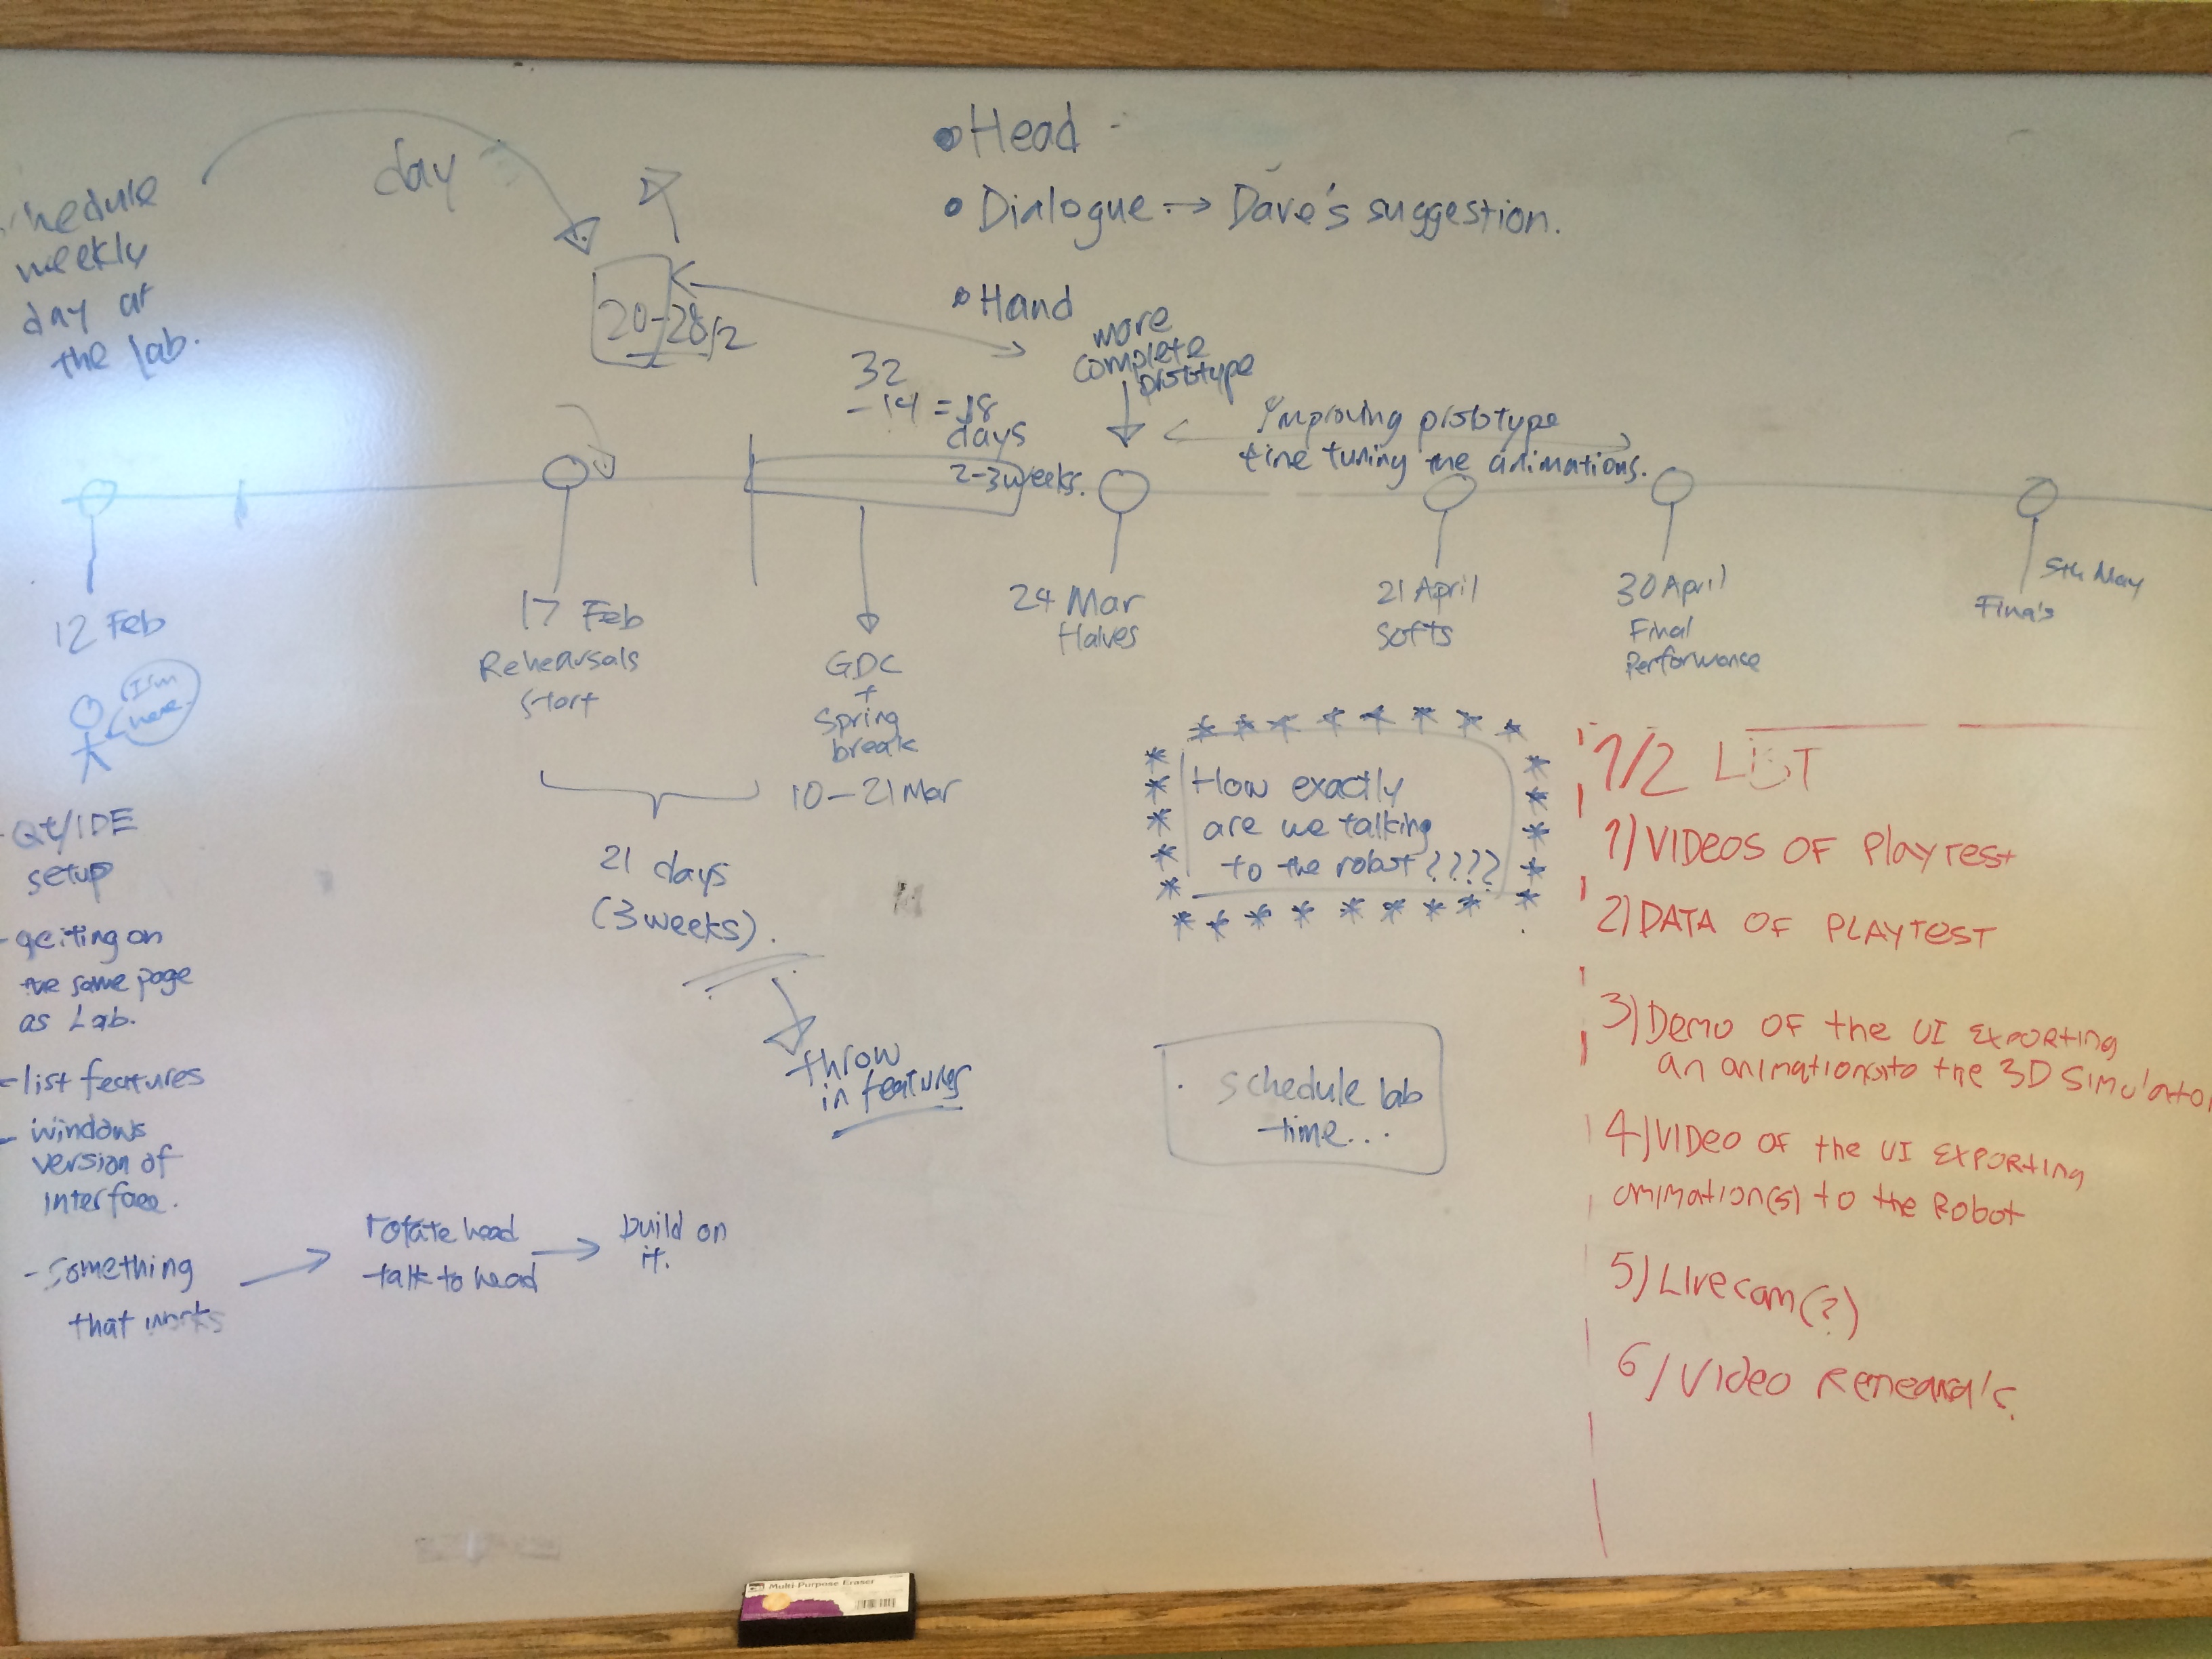 schedule
weekly
day at
the lab.
day
20-28/2
Head
Dialogue → Dave's suggestion.
Hand
more
complete
prototype
32
-14 = 18
days
2-3 weeks.
Improving prototype
fine tuning the animations.
12 Feb
I'm
here.
17 Feb
Rehearsals
start
GDC
+
Spring
break
10-21 Mar
24 Mar
Halves
21 April
Softs
30 April
Final
Performance
5th May
Finals
21 days
(3 weeks).
throw
in features
- Qt/IDE
setup
- getting on
the same page
as Lab.
- list features
- windows
version of
interface.
- something
that works
→ rotate head
talk to head
→ build on
it.
How exactly
are we talking
to the robot????
. schedule lab
time...
1/2 LIST
1) VIDEOS OF Playtest
2) DATA OF PLAYTEST
3) Demo OF the UI Exporting
an animation(s) to the 3D Simulator
4) VIDEO OF the UI EXPORting
animation(s) to the Robot
5) Livecam(?)
6) Video Rehearsals.
Multi-Purpose Eraser